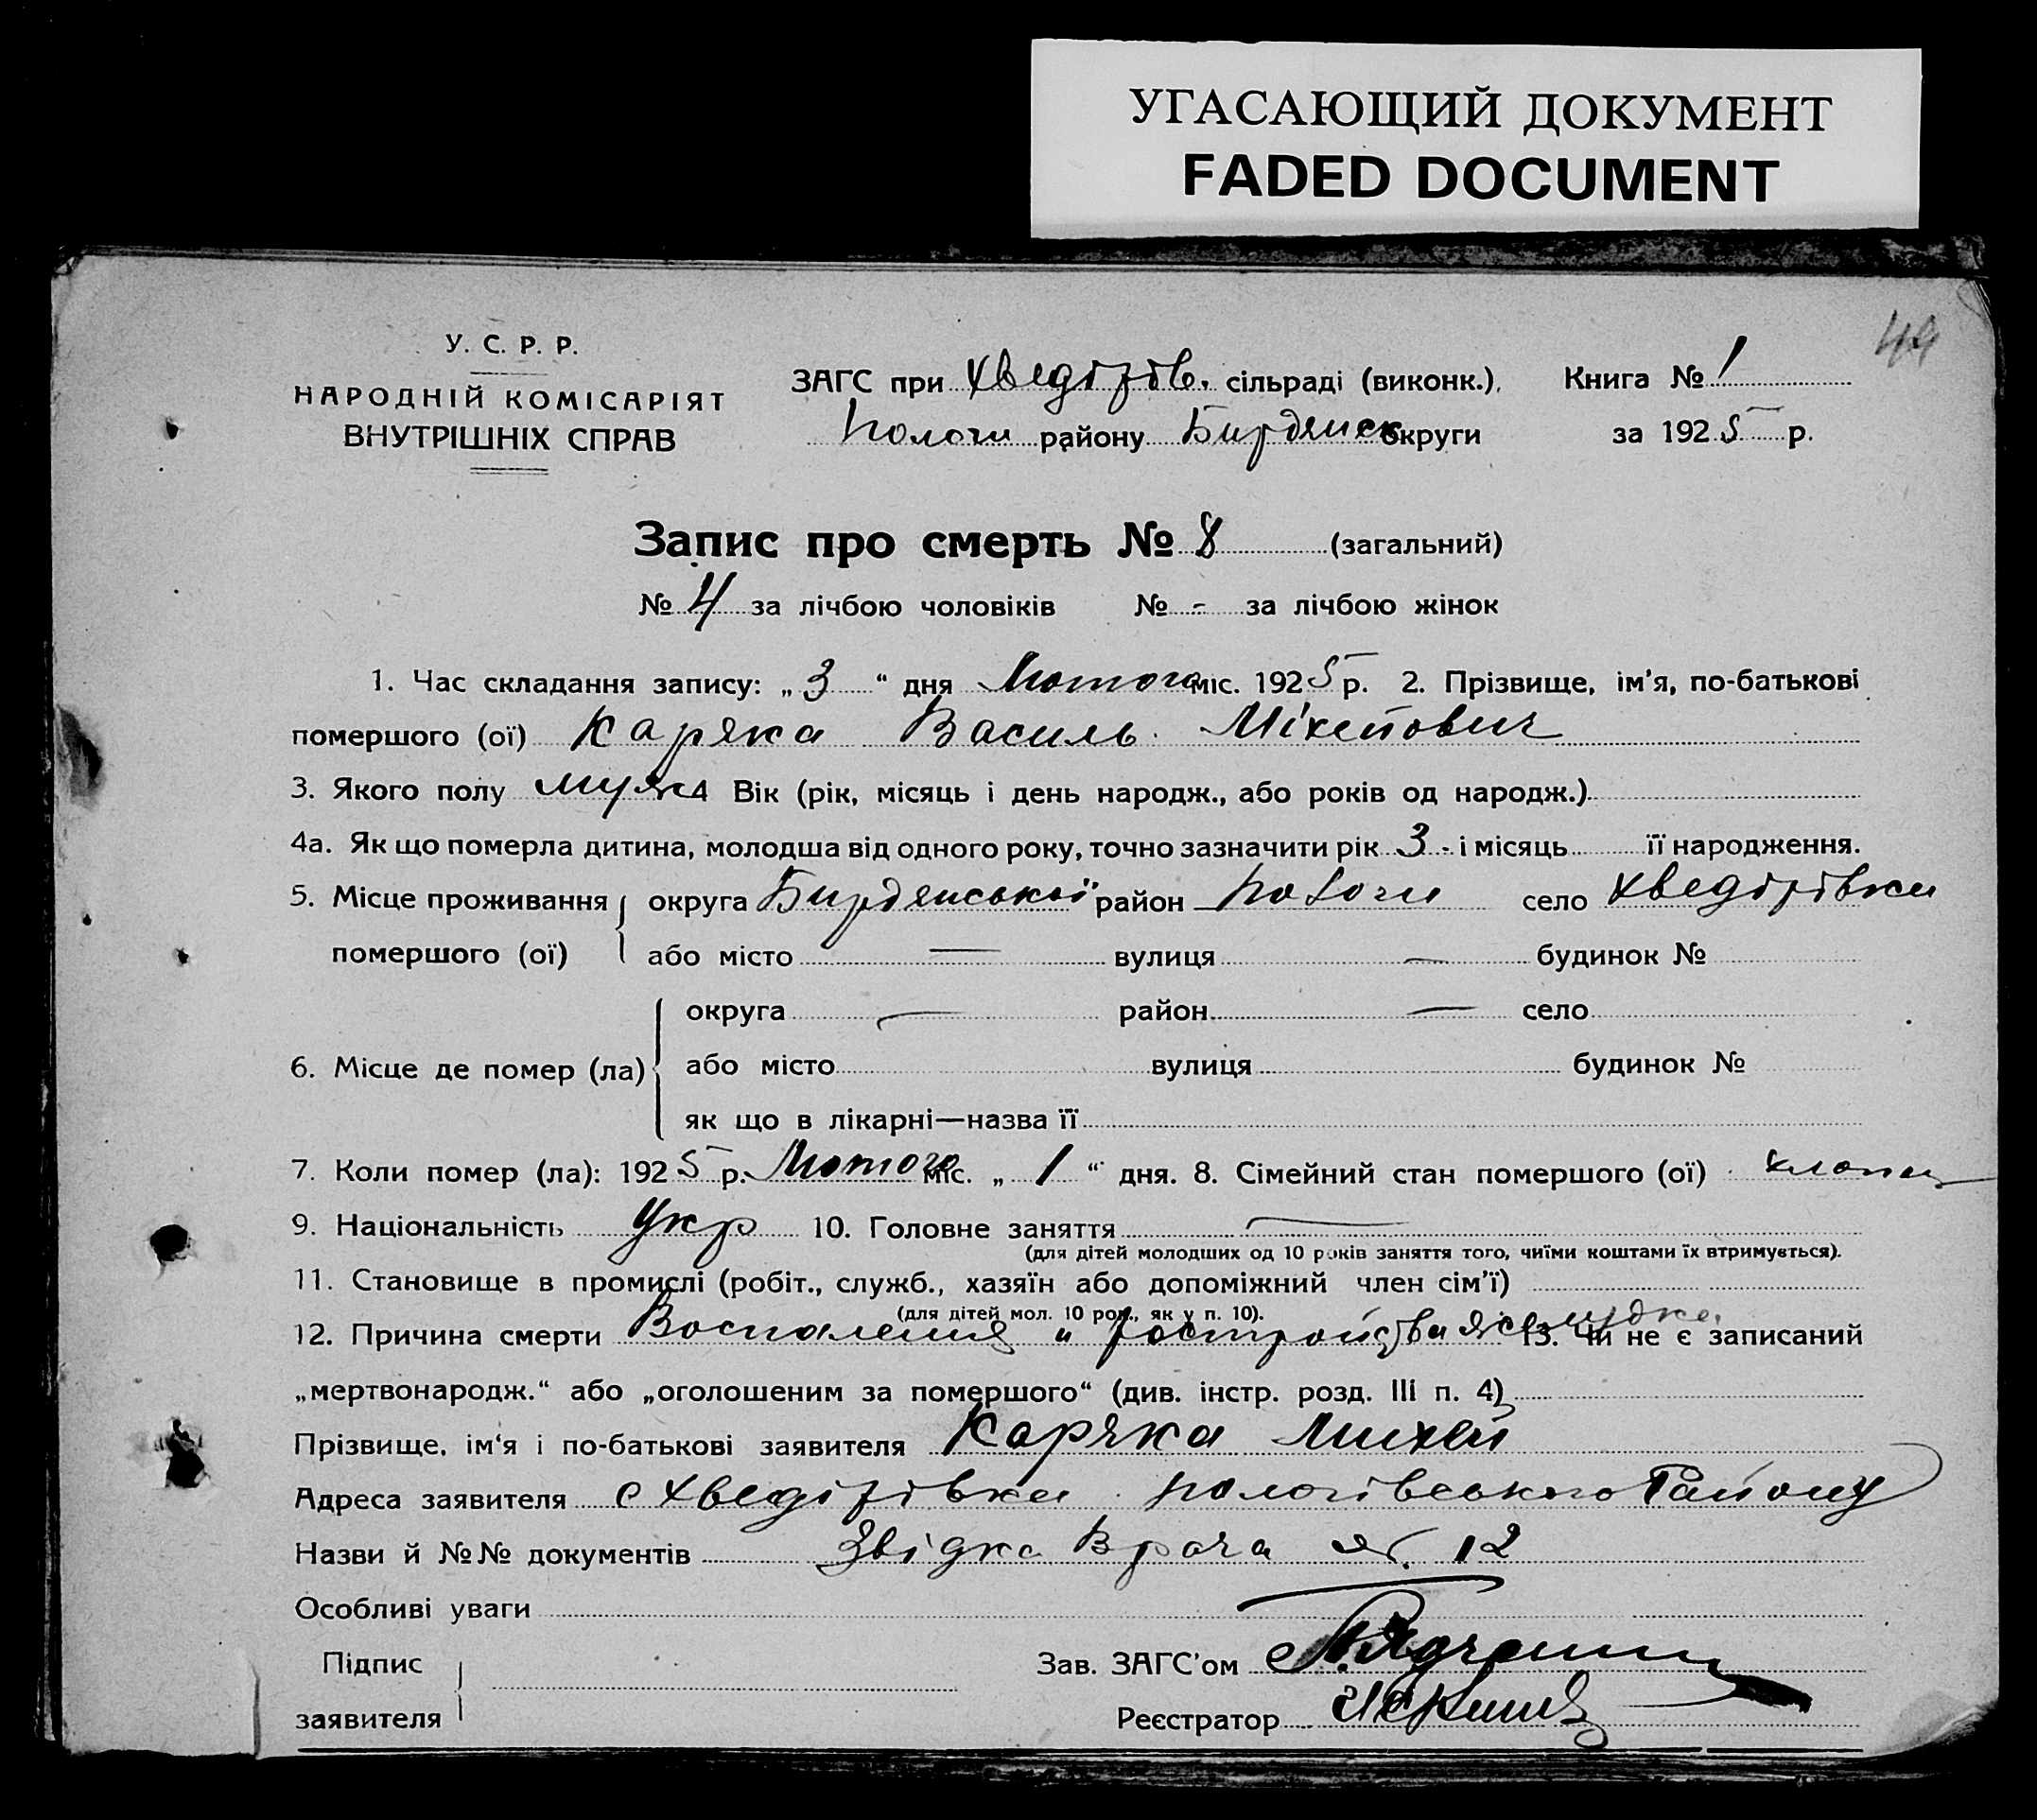 УГАСАЮЩИЙ ДОКУМЕНТ
FADED DOCUMENT
У. С. Р. Р.
НАРОДНІЙ КОМІСАРІЯТ
ВНУТРІШНІХ СПРАВ
ЗАГС при Хведірів. сільраді (виконк.),
Пологи району Бирдянськ округи
Книга № 1
за 1925 р.
Запис про смерть № 8 (загальний)
№ 4 за лічбою чоловіків № - за лічбою жінок
1. Час складання запису: „3“ дня Лютого міс. 1925 р. 2. Прізвище, ім'я, по-батькові
помершого (ої) Каряка Василь Міхейович
3. Якого полу муж 4 Вік (рік, місяць і день народж., або років од народж.)
4а. Як що померла дитина, молодша від одного року, точно зазначити рік 3 - і місяць її народження.
5. Місце проживання помершого (ої) округа Бирдянської район Пологи село Хведірівки
або місто — вулиця — будинок №
6. Місце де помер (ла) округа — район — село
або місто вулиця будинок №
як що в лікарні—назва її
7. Коли помер (ла): 1925 р. Лютого міс. „1“ дня. 8. Сімейний стан помершого (ої) хлопец
9. Національність Укр 10. Головне заняття —
(для дітей молодших од 10 років заняття того, чиїми коштами їх втримується).
11. Становище в промислі (робіт., служб., хазяїн або допоміжний член сім'ї)
(для дітей мол. 10 рок., як у п. 10).
12. Причина смерти Воспаления и ростройства жолудка 13. Чи не є записаний
„мертвонародж.“ або „оголошеним за помершого“ (див. інстр. розд. III п. 4)
Прізвище, ім'я і по-батькові заявителя Каряка Михей
Адреса заявителя с Хведірівки пологівського Району
Назви й №№ документів Звідка Врача № 12
Особливі уваги
Підпис заявителя
Зав. ЗАГС'ом
Реєстратор